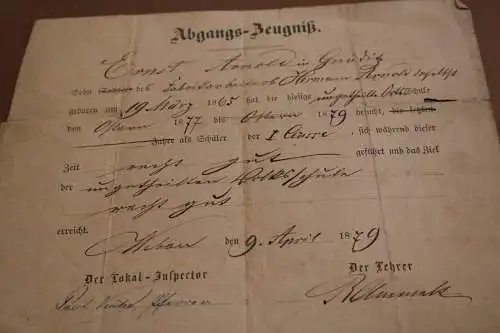 Abgangs-Zeugniß.
Ernst Arnold in Gnädig
Sohn des Fabrikarbeiters Hermann Arnold daselbst
geboren am 19 März 1865 hat die hiesige ungetheilte Volksschule
von Ostern 1877 bis Ostern 1879 besucht, die letzten
Jahre als Schüler der I Classe, sich während dieser
Zeit recht gut geführt und das Ziel
der ungetheilten Volksschule
recht gut
erreicht.
den 9. April 1879
Der Lokal-Inspector
Der Lehrer
Pfarrer